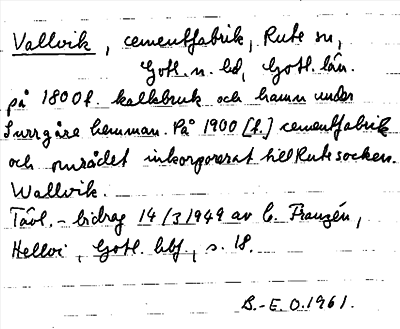 Vallvik, cementfabrik, Rute sn,
Gotl. n. hd, Gotl. län.
på 1800 t. kalkbruk och hamn under
Surrgåre hemman. På 1900 [t.] cementfabrik
och området inkorporerat till Rute socken.
Wallvik.
Tävl. - bidrag 14/3 1949 av C. Franzén,
Hellvi, Gotl. hbf, s. 18.
B.-E. O. 1961.